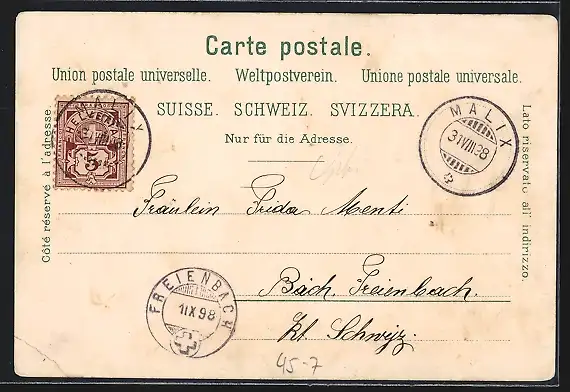 Carte postale.
Union postale universelle. Weltpostverein. Unione postale universale.
SUISSE. SCHWEIZ. SVIZZERA.
Nur für die Adresse.
Côté réservé à l'adresse.
Lato riservato all' indirizzo.
HELVETIA
5
MALIX
31 VIII 98
Fräulein Frida Menti
Bäch, Freienbach.
Kt. Schwyz.
FREIENBACH
1 IX 98
45-7